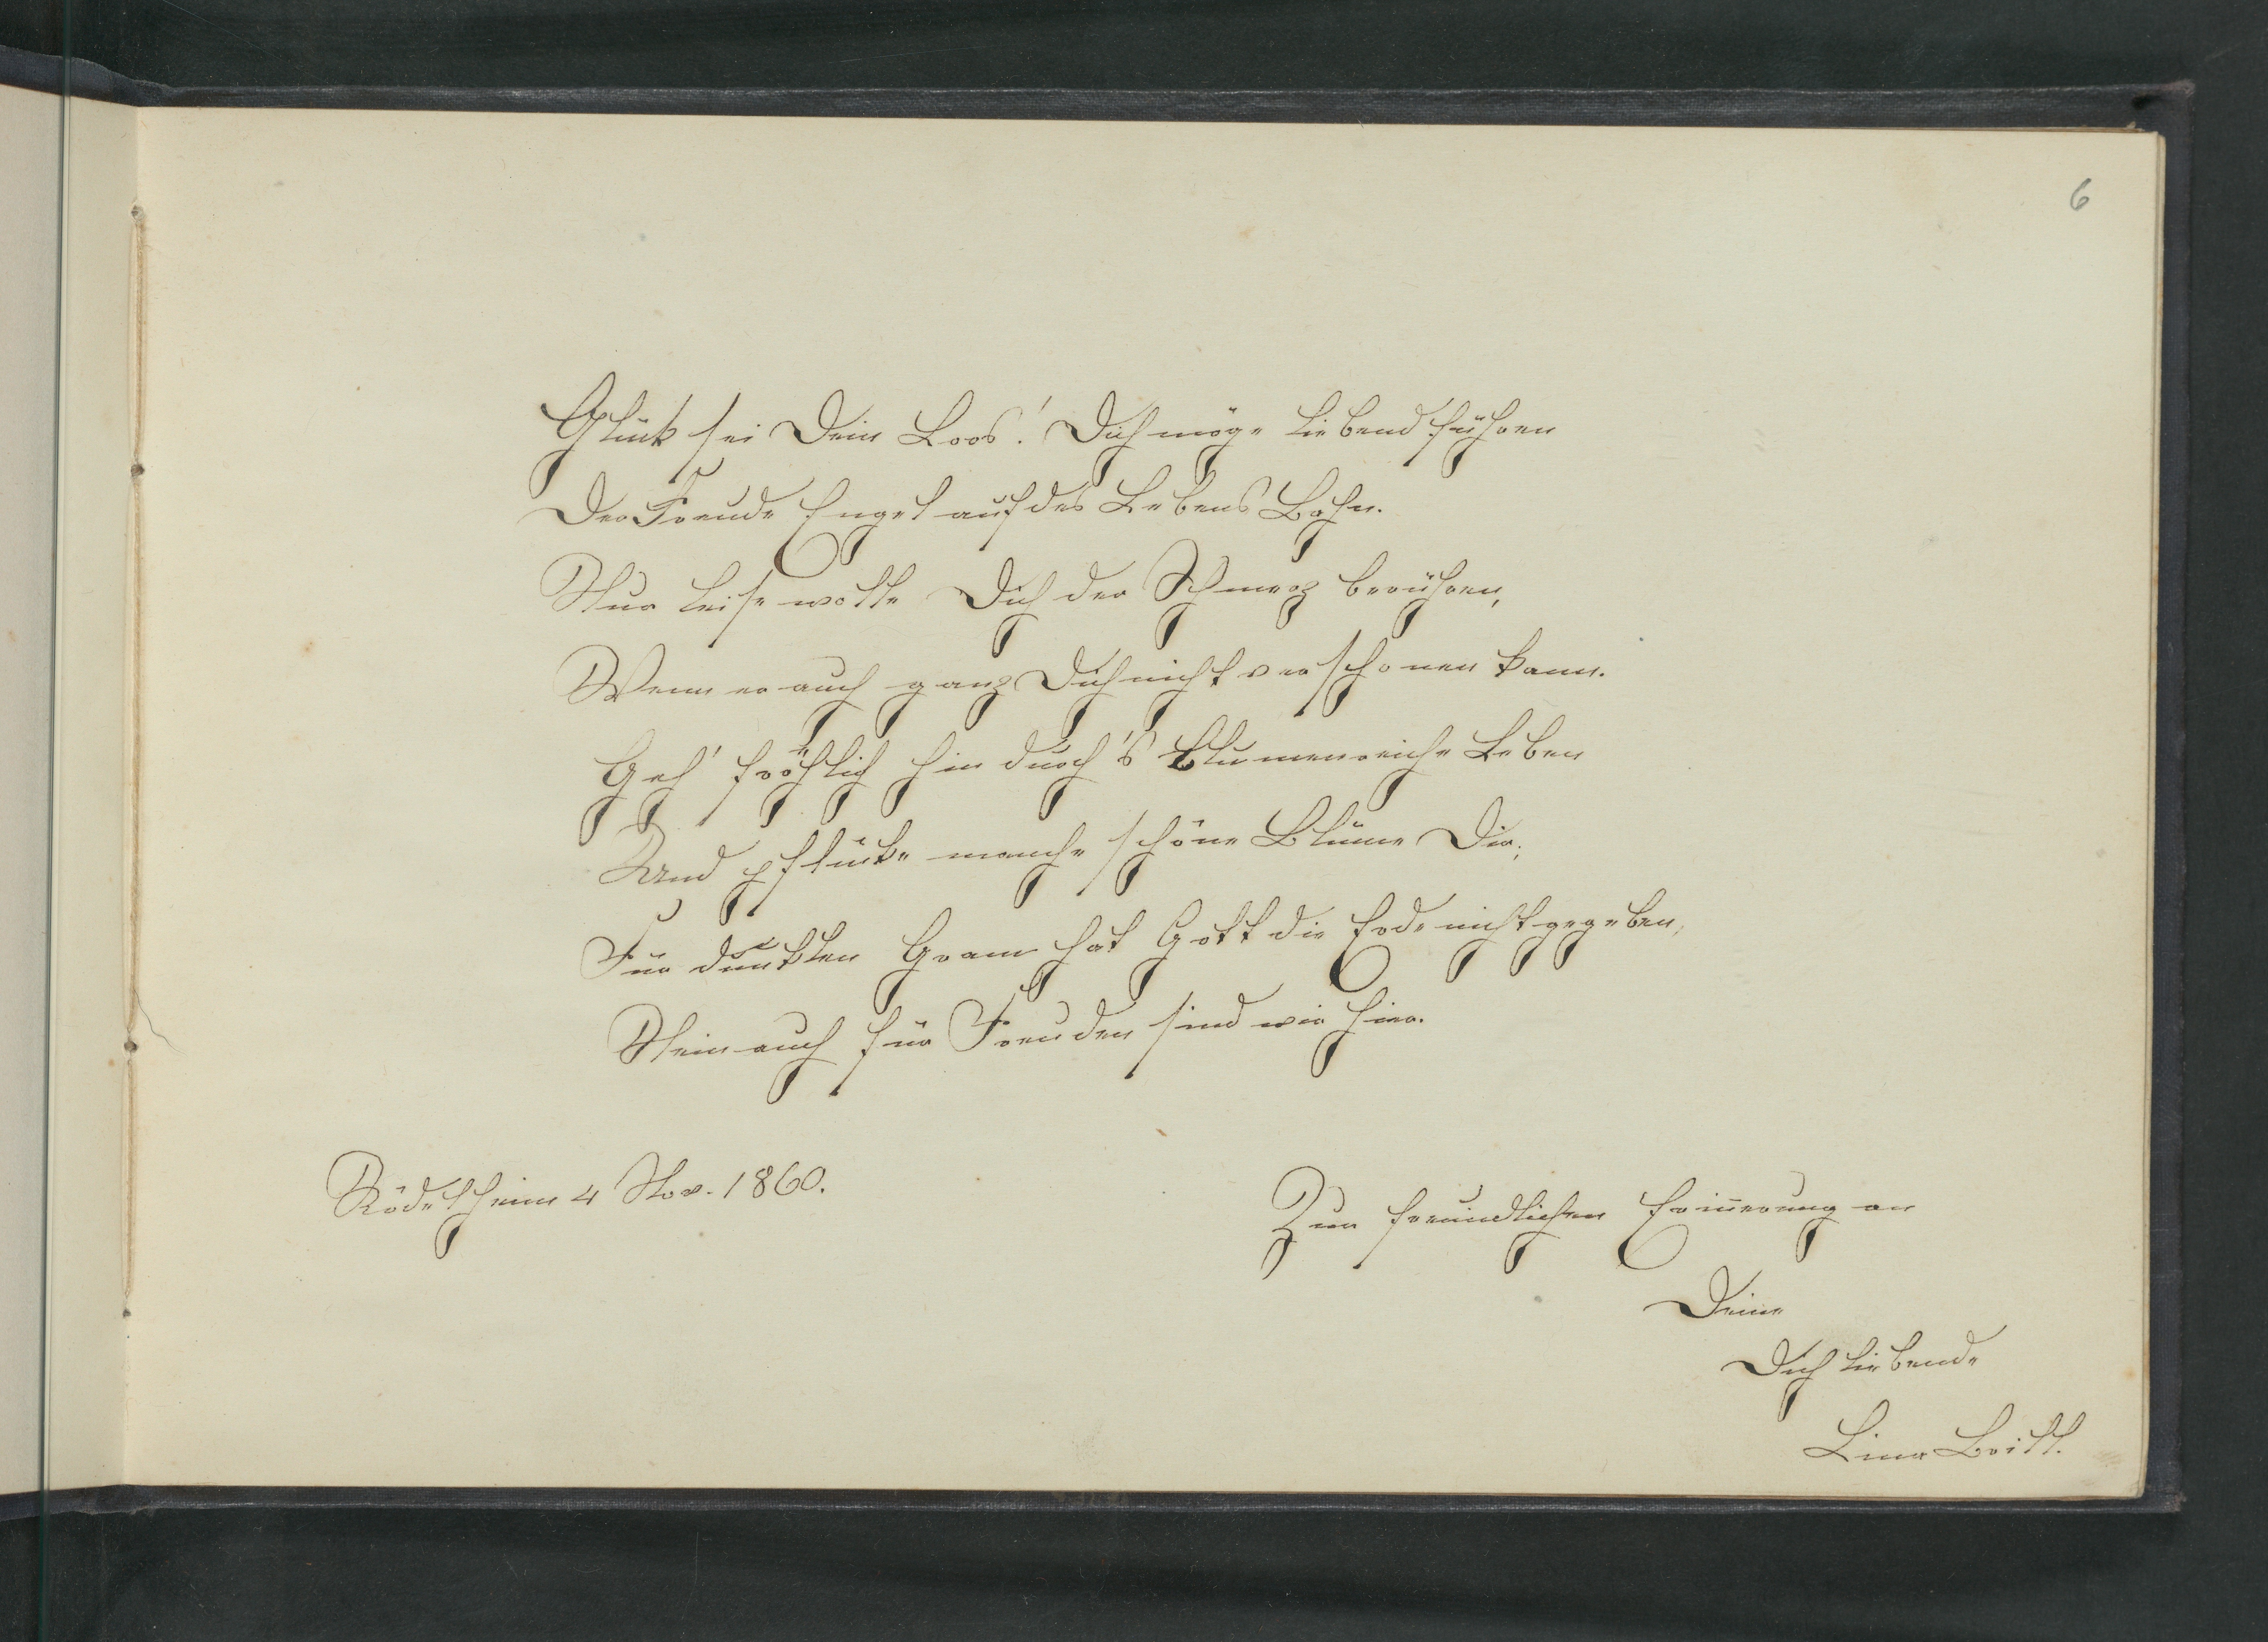 6
Glück sei Dein Loos! Dich möge liebend führen
Der Freude Engel auf des Lebens Bahn.
Nur leise wolle Dich der Schmerz berühren,
Wenn er auch ganz Dich nicht verschonen kann.
Geh' fröhlich hin durch's blumenreiche Leben
Und pflücke manche schöne Blume Dir;
Für dunklen Gram hat Gott die Erde nicht gegeben,
Nein auch für Freuden sind wir hier.
Rödelheim 4 Nov. 1860.
Zur freundlichen Erinnerung an
Deine
Dich liebende
Lina